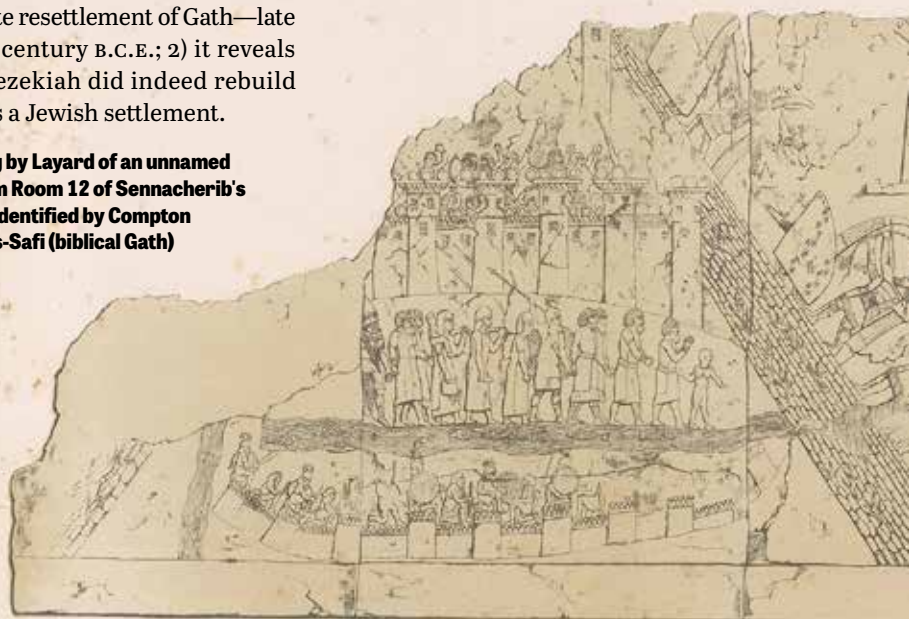 te resettlement of Gath—late
century B.C.E.; 2) it reveals
ezekiah did indeed rebuild
s a Jewish settlement.
g by Layard of an unnamed
m Room 12 of Sennacherib's
dentified by Compton
s-Safi (biblical Gath)